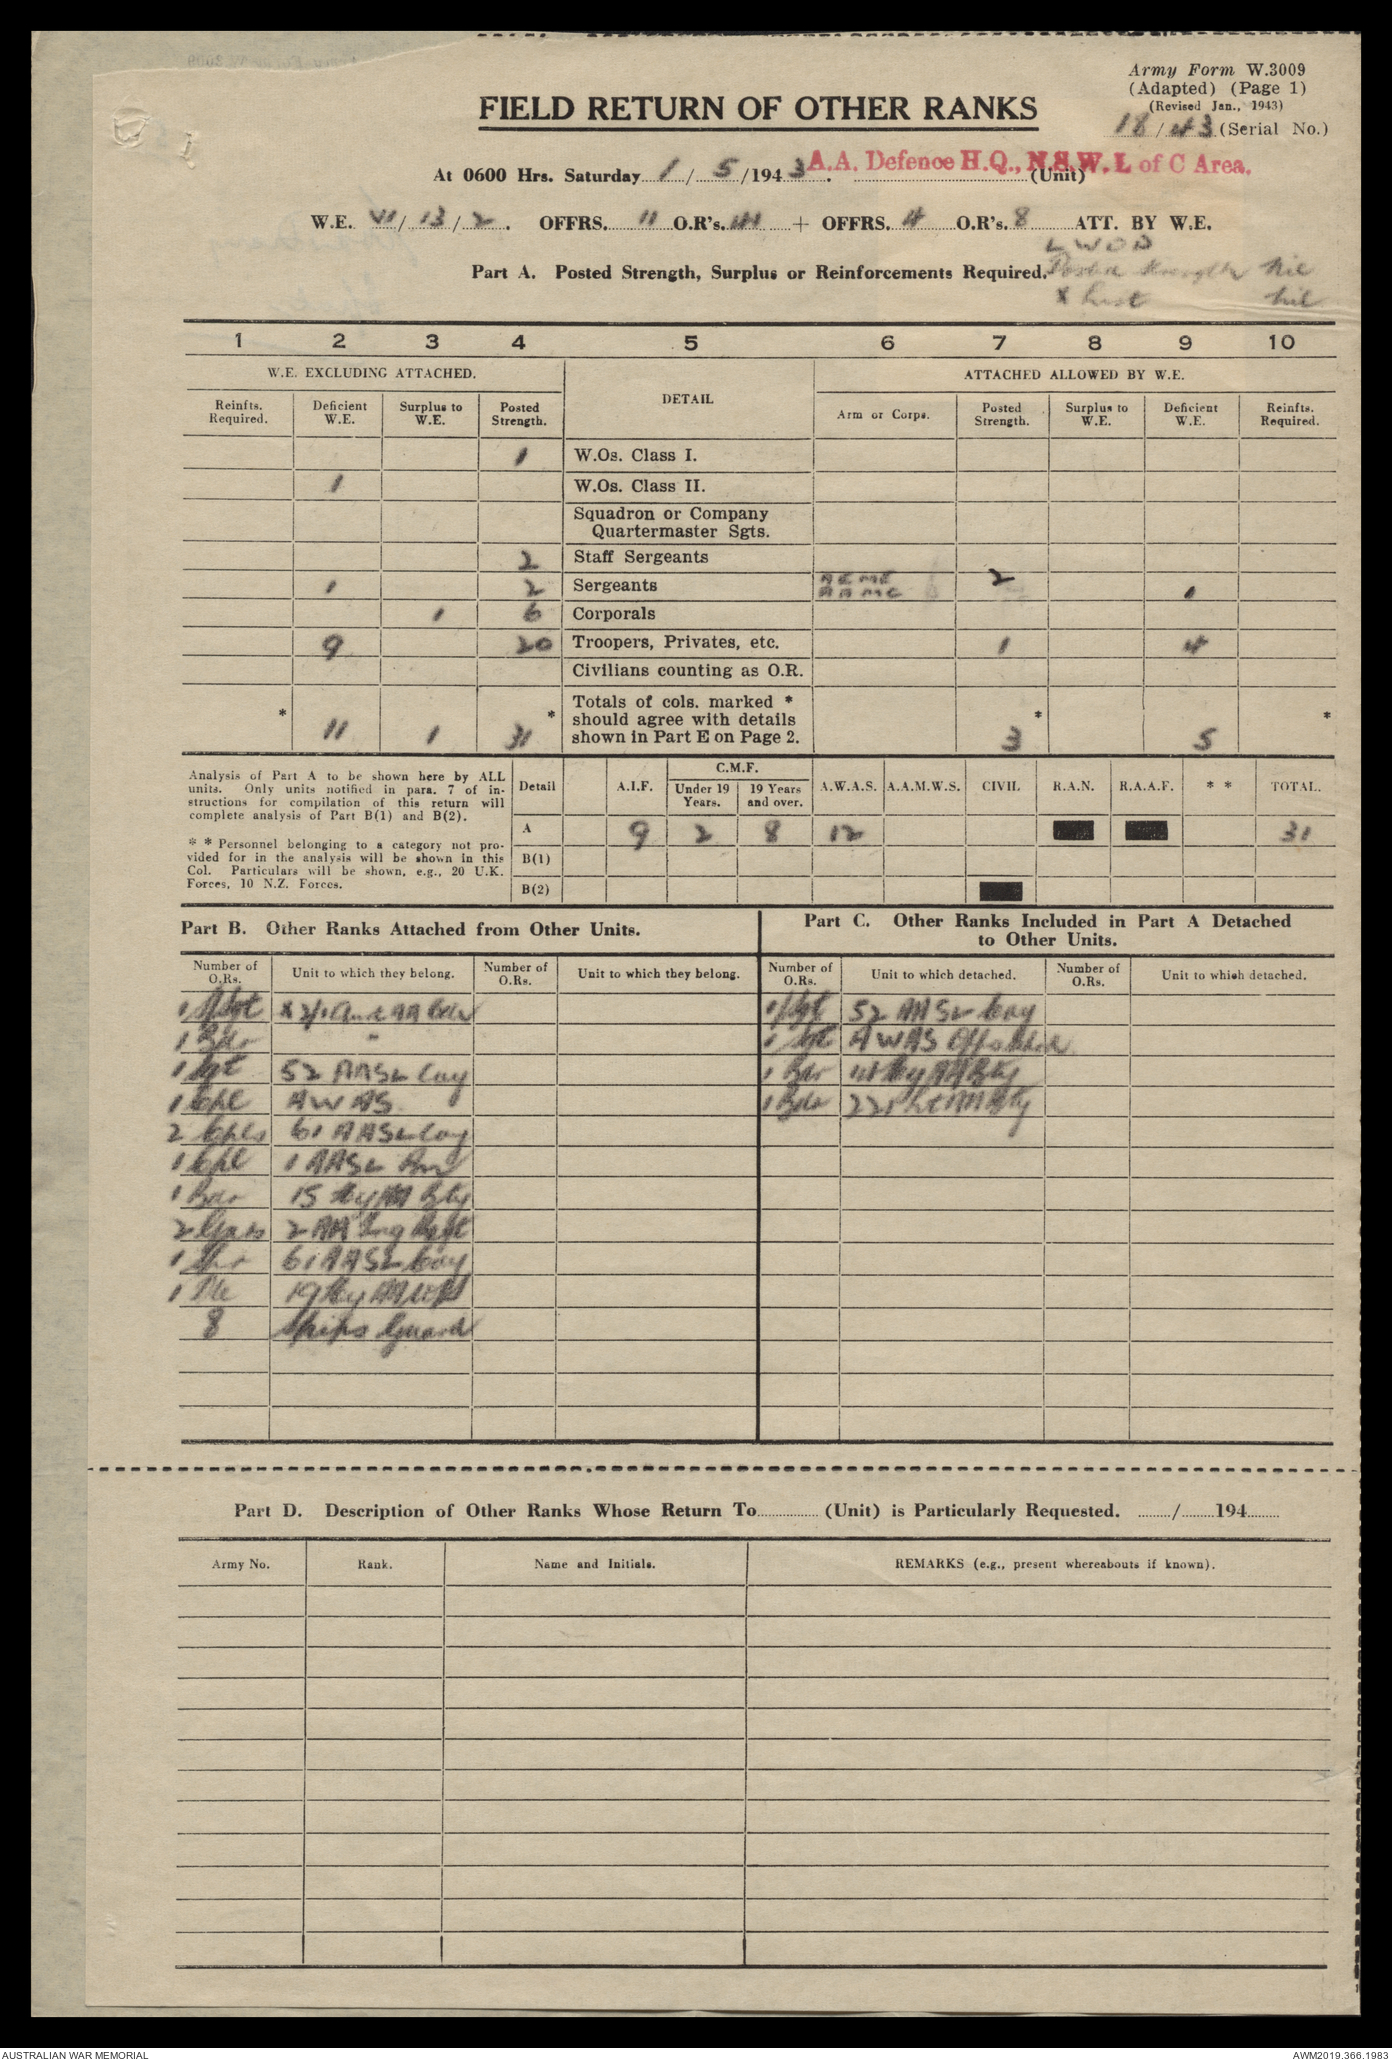 Army Form W.3009
(Adapted) (Page 1)
(Revised Jan., 1943)
18/43 (Serial No.)
FIELD RETURN OF OTHER RANKS
At 0600 Hrs. Saturday 1/5/1943. A.A. Defence H.Q., N.S.W. L of C Area. (Unit)
W.E. VI/13/2. OFFRS. 11 O.R's. 41 + OFFRS. 4 O.R's. 8 ATT. BY W.E.
LWOD
Part A. Posted Strength, Surplus or Reinforcements Required. Posted Strength Nil
X List Nil
1 2 3 4 5 6 7 8 9 10
W.E. EXCLUDING ATTACHED. DETAIL ATTACHED ALLOWED BY W.E.
Reinfts. Required. Deficient W.E. Surplus to W.E. Posted Strength. Arm or Corps. Posted Strength. Surplus to W.E. Deficient W.E. Reinfts. Required.
1 W.Os. Class I.
1 W.Os. Class II.
Squadron or Company
Quartermaster Sgts.
2 Staff Sergeants
1 2 Sergeants AEME AAMC 2 1
1 6 Corporals
9 20 Troopers, Privates, etc. 1 4
Civilians counting as O.R.
Totals of cols. marked *
* * should agree with details * *
11 1 31 shown in Part E on Page 2. 3 5
Analysis of Part A to be shown here by ALL
units. Only units notified in para. 7 of in-
structions for compilation of this return will
complete analysis of Part B(1) and B(2).
* * Personnel belonging to a category not pro-
vided for in the analysis will be shown in this
Col. Particulars will be shown, e.g., 20 U.K.
Forces, 10 N.Z. Forces.
C.M.F.
Detail A.I.F. Under 19 Years. 19 Years and over. A.W.A.S. A.A.M.W.S. CIVIL R.A.N. R.A.A.F. * * TOTAL.
A 9 2 8 12 31
B(1)
B(2)
Part B. Other Ranks Attached from Other Units.
Number of O.Rs. Unit to which they belong. Number of O.Rs. Unit to which they belong.
1 S/Sgt X 2/1 Aust AA Bde
1 Bdr "
1 Sgt 52 AASL Coy
1 Cpl AWAS
2 Cpls 61 AASL Coy
1 Cpl 1 AASL
1 Bdr 15 Hy AA Bty
2 Gnrs 2 AA Trg Regt
1 Spr 61 AASL Coy
1 Pte 19 Hy AA
8 Ships Guard
Part C. Other Ranks Included in Part A Detached
to Other Units.
Number of O.Rs. Unit to which detached. Number of O.Rs. Unit to which detached.
1 Sgt 52 AASL Coy
1 Sgt AWAS Offs
1 Bdr Hy AA Bty
1 Bdr 221 Lt AA Bty
Part D. Description of Other Ranks Whose Return To (Unit) is Particularly Requested. / 194
Army No. Rank. Name and Initials. REMARKS (e.g., present whereabouts if known).
AUSTRALIAN WAR MEMORIAL AWM2019.366.1983